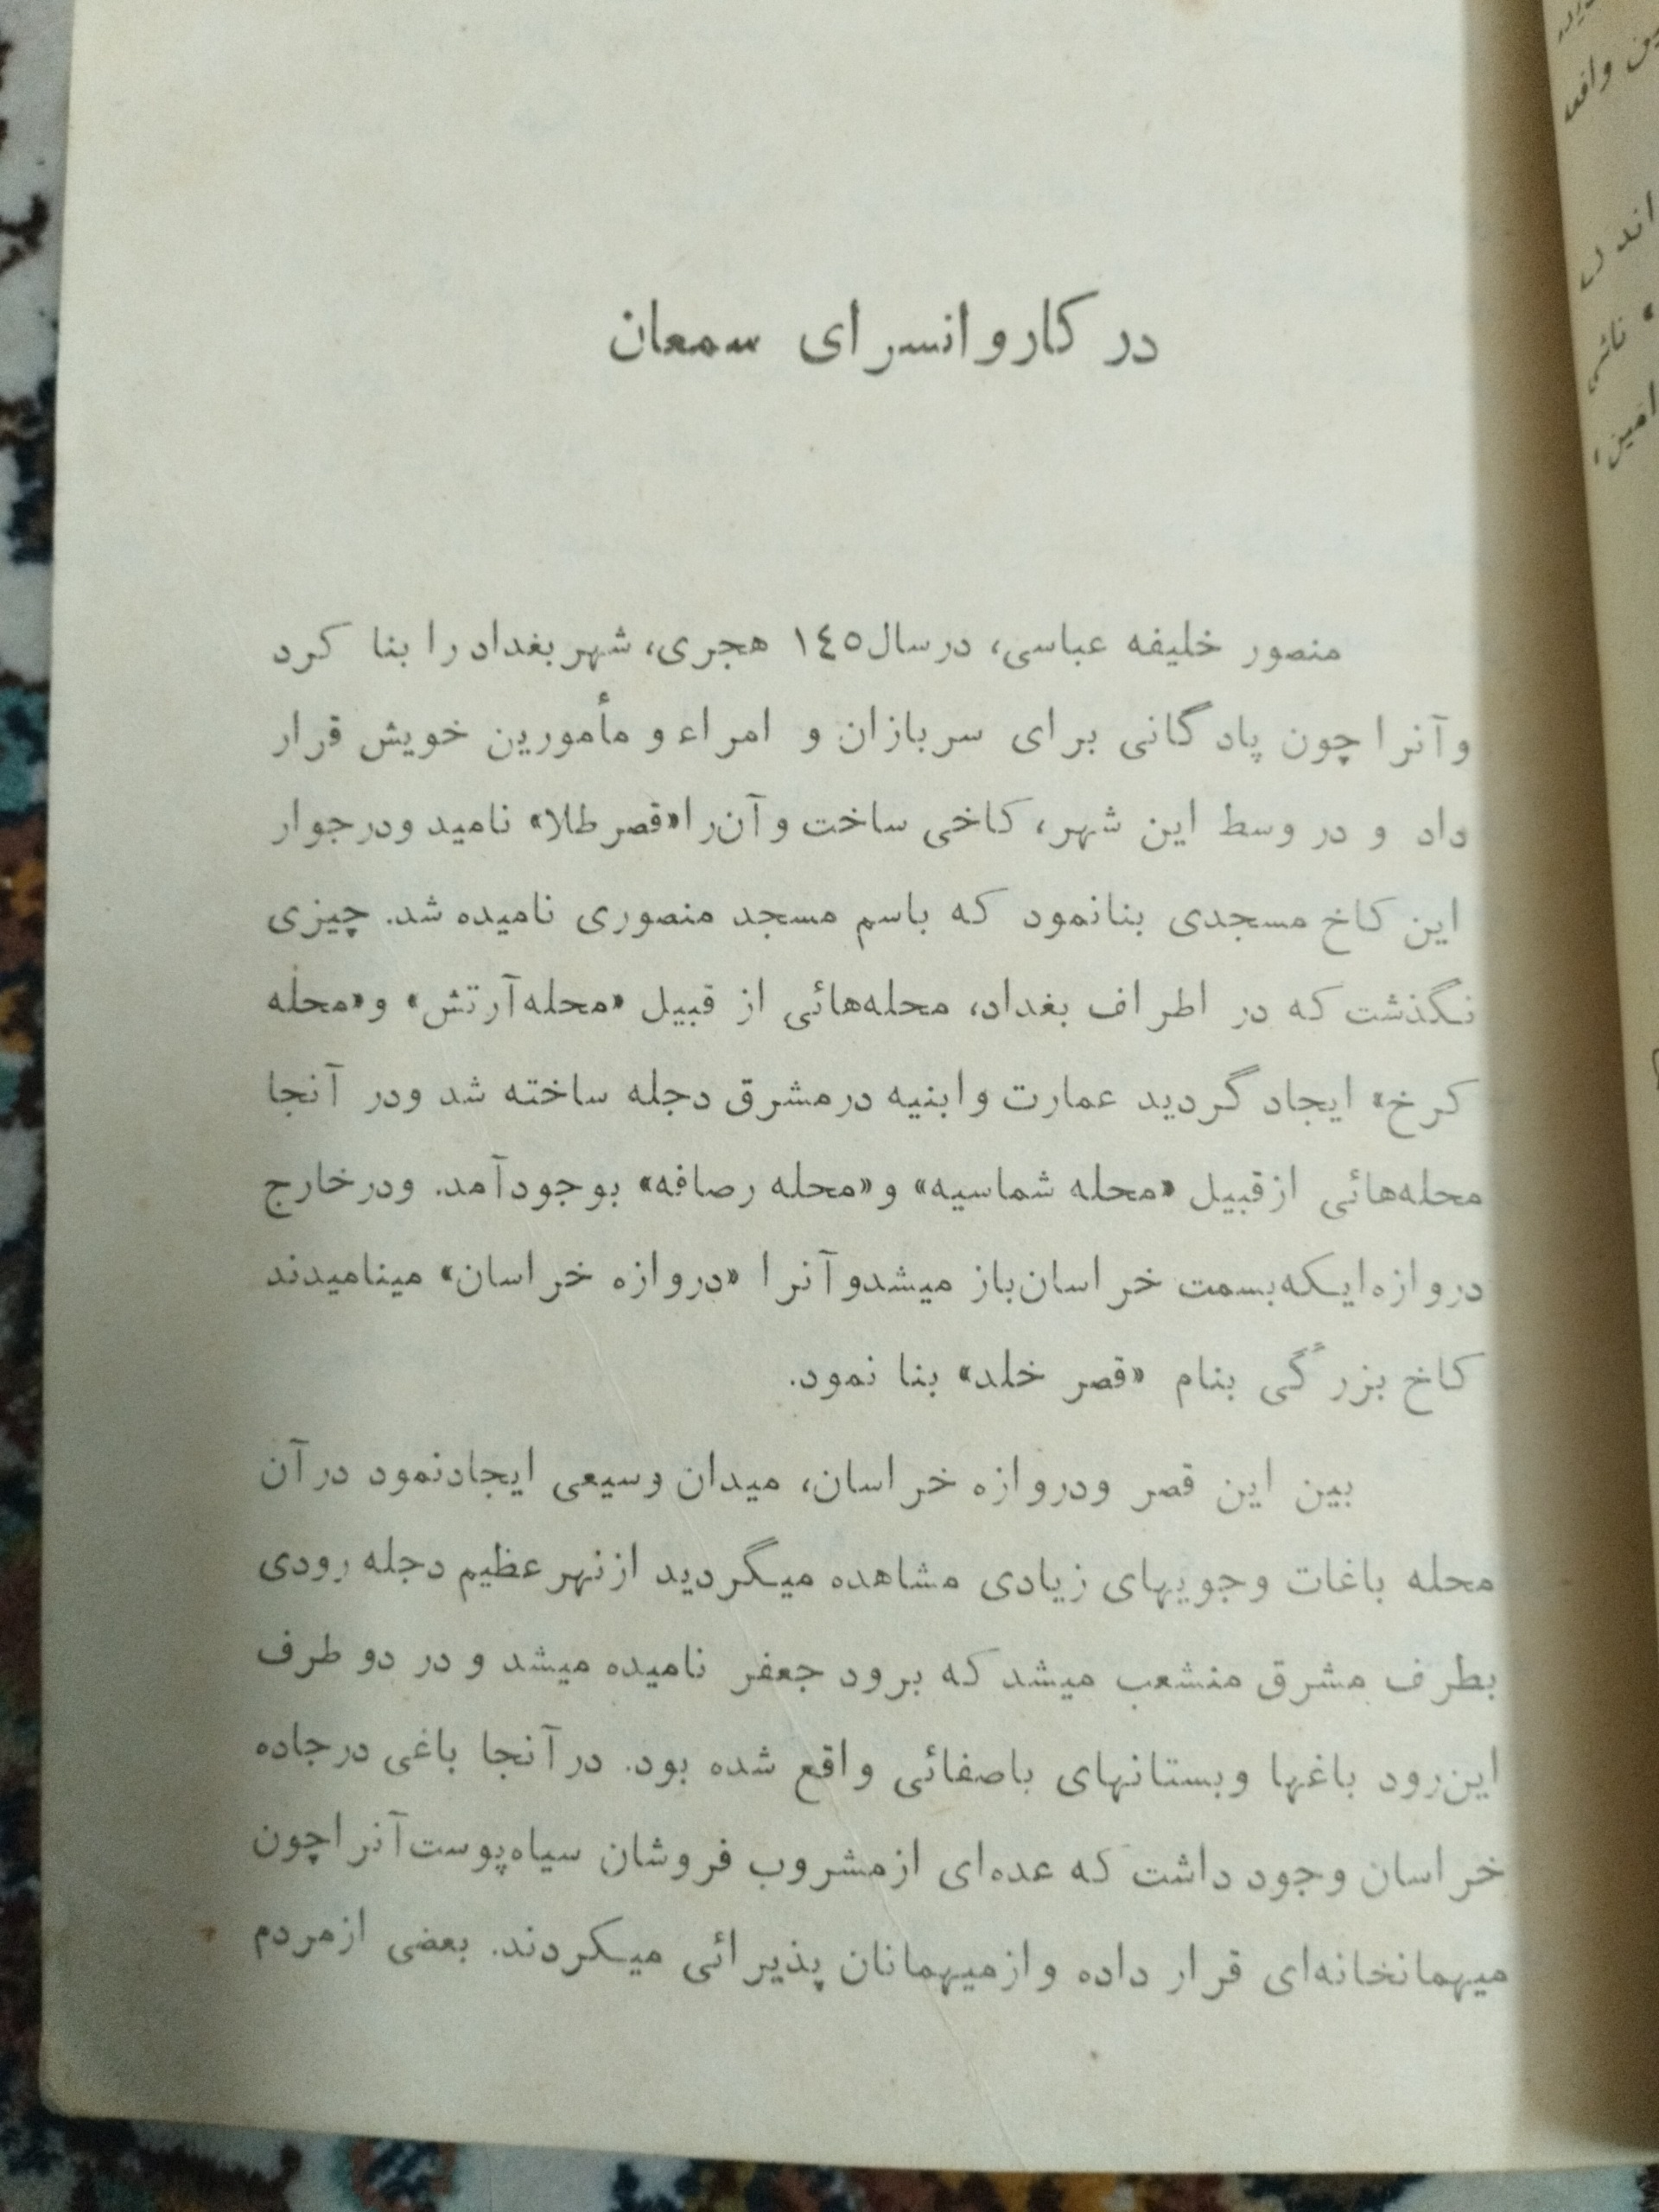 در کاروانسرای سمعان
منصور خلیفه عباسی، در سال ١٤٥ هجری، شهر بغداد را بنا کرد
و آنرا چون پادگانی برای سربازان و امراء و مأمورین خویش قرار
داد و در وسط این شهر، کاخی ساخت و آن‌را «قصر طلا» نامید و در جوار
این کاخ مسجدی بنا نمود که باسم مسجد منصوری نامیده شد. چیزی
نگذشت که در اطراف بغداد، محله‌هائی از قبیل «محله آرتش» و «محله
کرخ» ایجاد گردید عمارت و ابنیه در مشرق دجله ساخته شد و در آنجا
محله‌هائی از قبیل «محله شماسیه» و «محله رصافه» بوجود آمد. و در خارج
دروازه‌ایکه بسمت خراسان باز میشد و آنرا «دروازه خراسان» مینامیدند
کاخ بزرگی بنام «قصر خلد» بنا نمود.
بین این قصر و دروازه خراسان، میدان وسیعی ایجاد نمود در آن
محله باغات و جویهای زیادی مشاهده میگردید از نهر عظیم دجله رودی
بطرف مشرق منشعب میشد که برود جعفر نامیده میشد و در دو طرف
این رود باغها و بستانهای باصفائی واقع شده بود. در آنجا باغی در جاده
خراسان وجود داشت که عده‌ای از مشروب فروشان سیاه‌پوست آنرا چون
میهمانخانه‌ای قرار داده و از میهمانان پذیرائی میکردند. بعضی از مردم